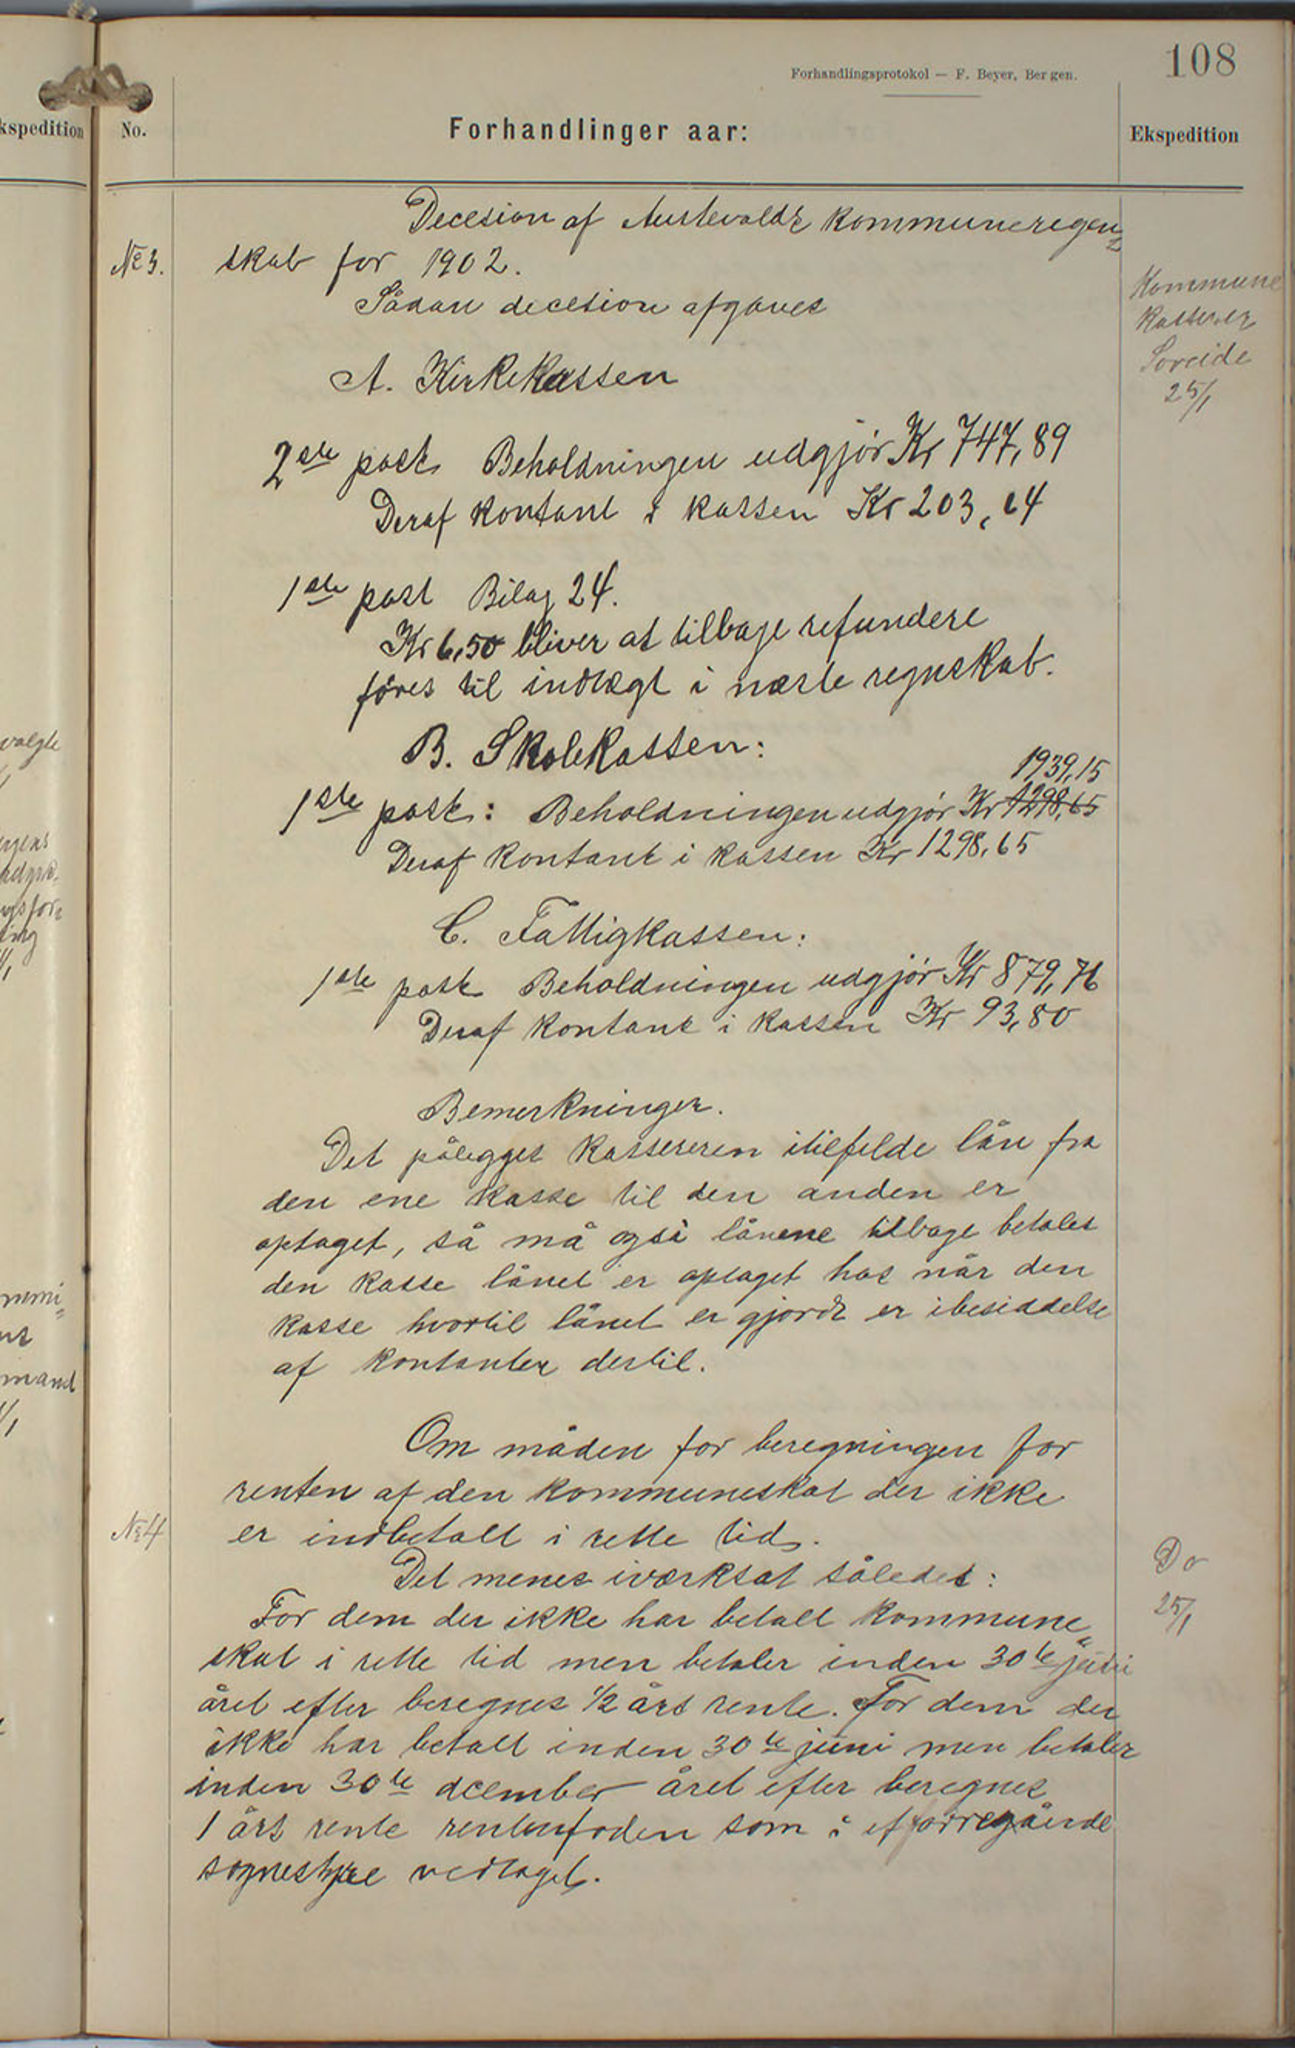 108
Forhandlingsprotokol — F. Beyer, Bergen.
kspedition
No.
Forhandlinger aar:
Ekspedition
Decesion af Austevolds kommuneregn=
No 3. skab for 1902.
Sådan decesion afgaves
Kommune
kasserer
Soreide
25/1
A. Kirkekassen
2den post Beholdningen udgjør Kr 747,89
Deraf kontant i kassen Kr 203,64
1ste post Bilag 24.
Kr 6,50 bliver at tilbage refundere
føres til indtægt i næste regnskab.
B. Skolekassen:
1939,15
1ste post: Beholdningen udgjør Kr 1298,65
Deraf kontant i kassen Kr 1298,65
C. Fattigkassen:
1ste post Beholdningen udgjør Kr 879,76
Deraf kontant i kassen Kr 93,80
Bemerkninger.
Det pålegges kassereren itilfelde lån fra
den ene kasse til den anden er
optaget, så må også lånene tilbage betales
den kasse lånet er optaget hos når den
kasse hvortil lånet er gjordt er ibesiddelse
af kontanter dertil.
Om måden for beregningen for
renten af den kommuneskat der ikke
No 4 er indbetalt i rette tid.
Det menes iværksat således:
Do
25/1
For dem der ikke har betalt kommune=
skat i rette tid men betaler inden 30te juni
året efter beregnes 1/2 års rente. For dem der
ikke har betalt inden 30te juni men betaler
inden 30te dcember året efter beregnes
1 års rente rentenfoden som i et forregående
sognestyre vedtaget.
valgte
mand